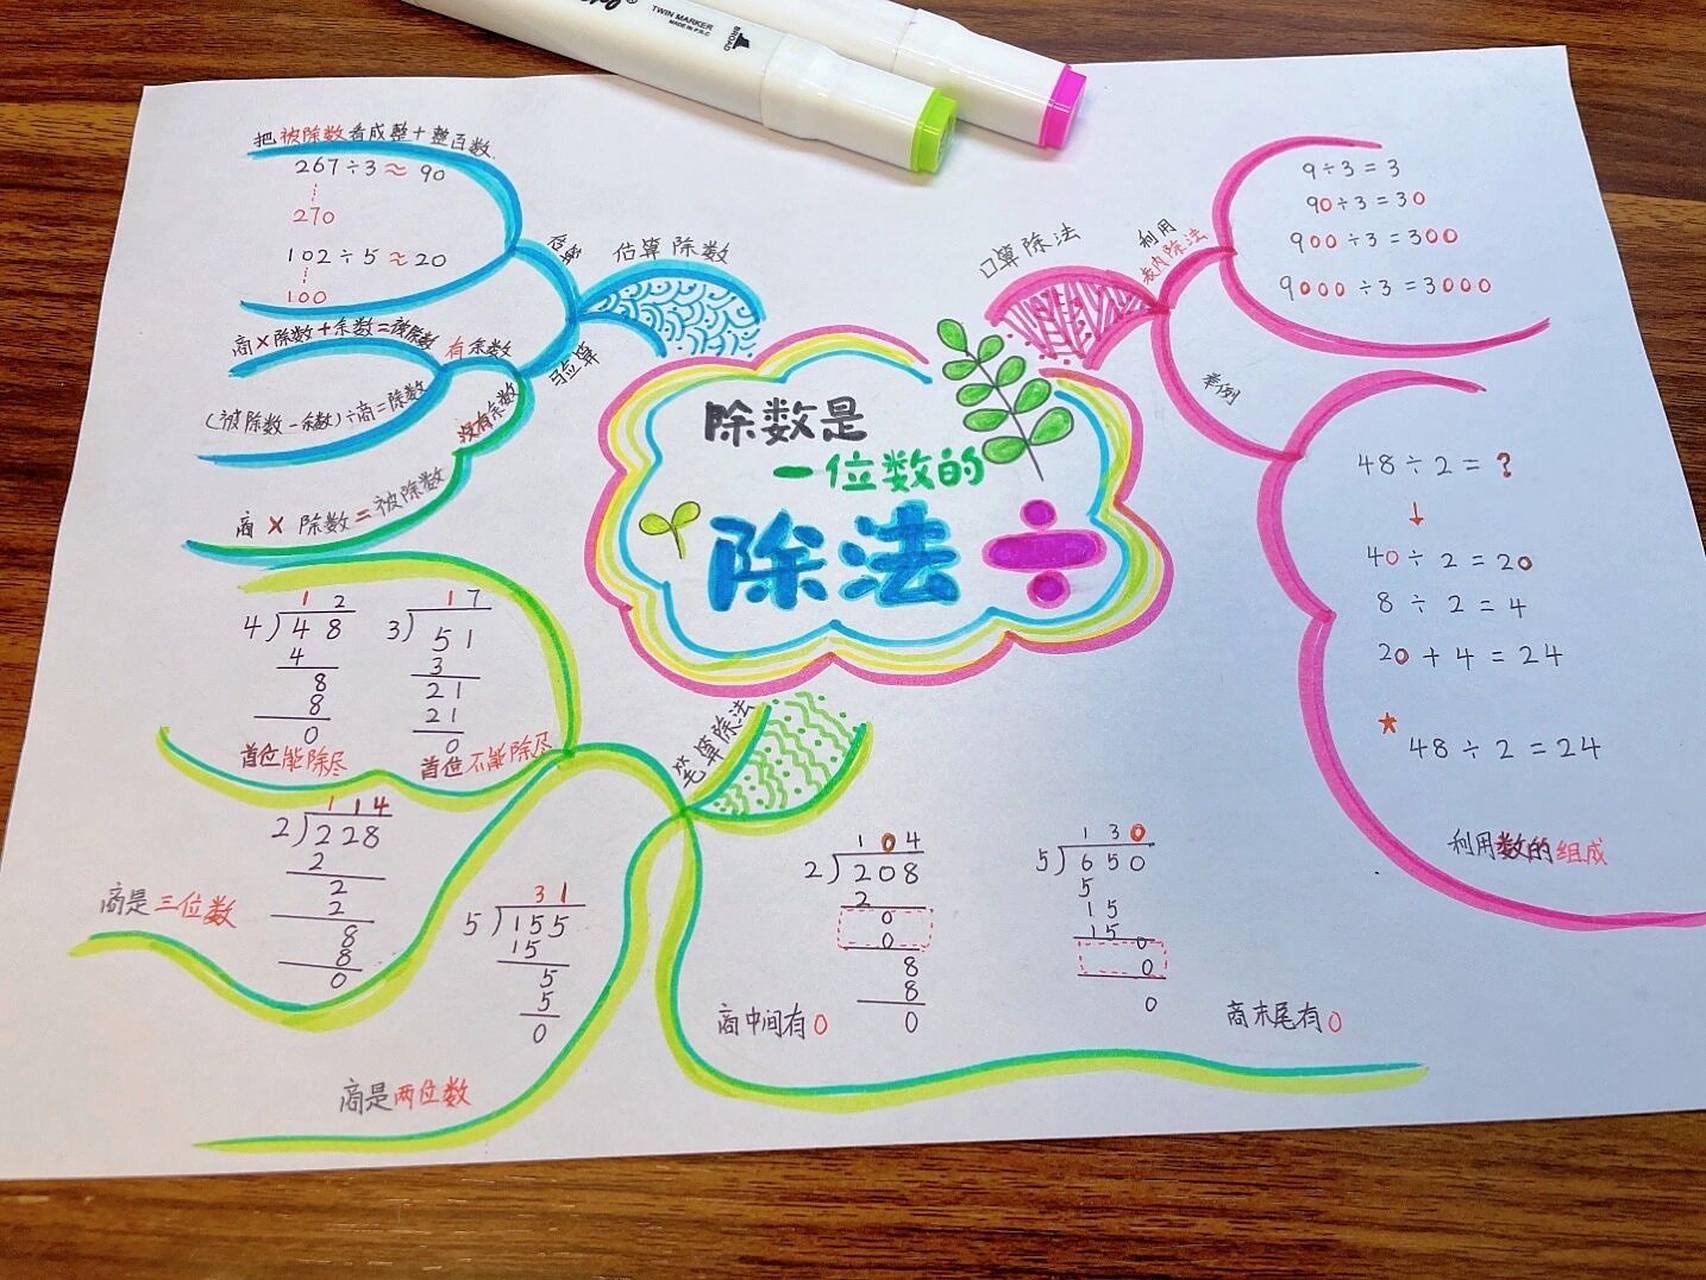 TWIN MARKER
MADE IN P.R.C
BROAD
除数是
一位数的
除法
÷
把被除数看成整十整百数.
267÷3≈90
270
102÷5≈20
100
估算
估算除数
验算
商×除数+余数=被除数
有余数
(被除数-余数)÷商=除数
没有余数
商×除数=被除数
口算除法
利用
表内除法
9÷3=3
90÷3=30
900÷3=300
9000÷3=3000
举例
48÷2=?
↓
40÷2=20
8÷2=4
20+4=24
★
48÷2=24
利用数的组成
笔算除法
12
4)48
4
8
8
0
首位能除尽
17
3)51
3
21
21
0
首位不能除尽
114
2)228
2
2
2
8
8
0
商是三位数
31
5)155
15
5
5
0
商是两位数
104
2)208
2
0
0
8
8
0
商中间有0
130
5)650
5
15
15
0
0
0
商末尾有0